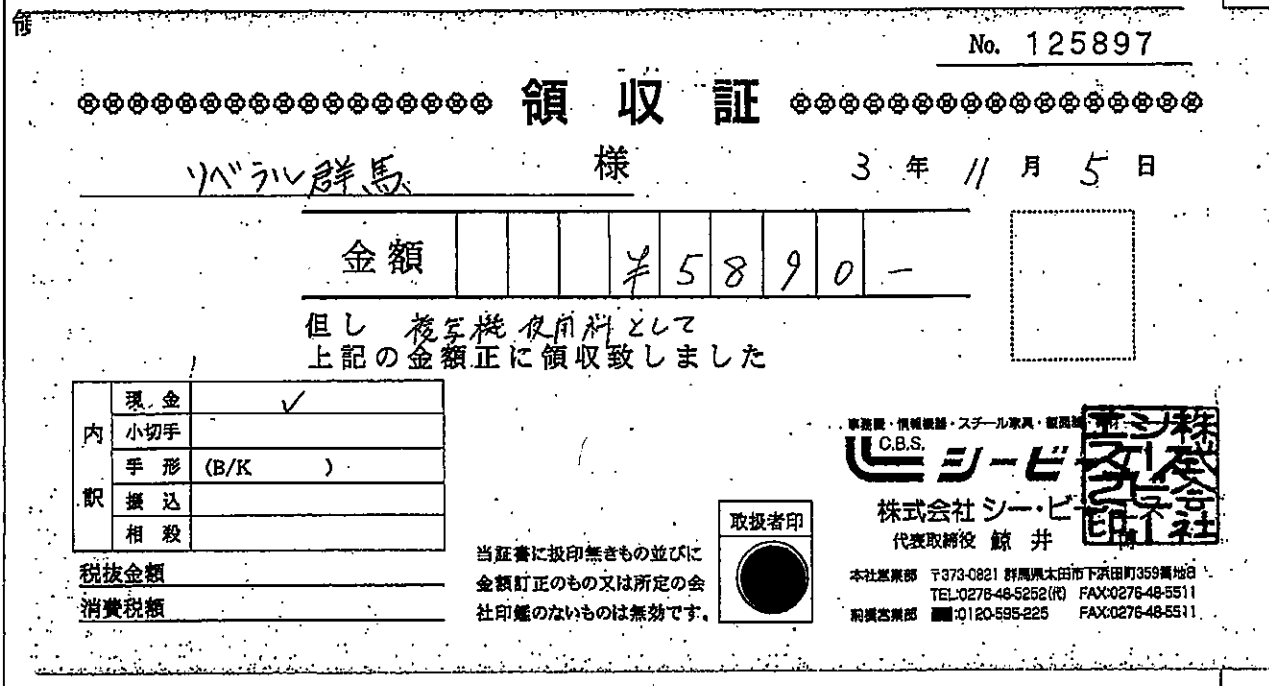 領
No. 125897
領収証
リベラル群馬 様 3年11月5日
金額 ¥5890-
但し 複写機使用料として
上記の金額正に領収致しました
内訳
現金 ✓
小切手
手形 (B/K )
振込
相殺
税抜金額
消費税額
当証書に扱印無きもの並びに
金額訂正のもの又は所定の会
社印鑑のないものは無効です。
取扱者印
事務機・情報機器・スチール家具・
C.B.S.
シービー
株式会社 シー・ビー
代表取締役 鯨井
株式会社シービーエス印
本社営業部 〒373-0821 群馬県太田市下浜田町359番地8
TEL:0276-48-5252(代) FAX:0276-48-5511
前橋営業部 :0120-595-225 FAX:0276-48-5511